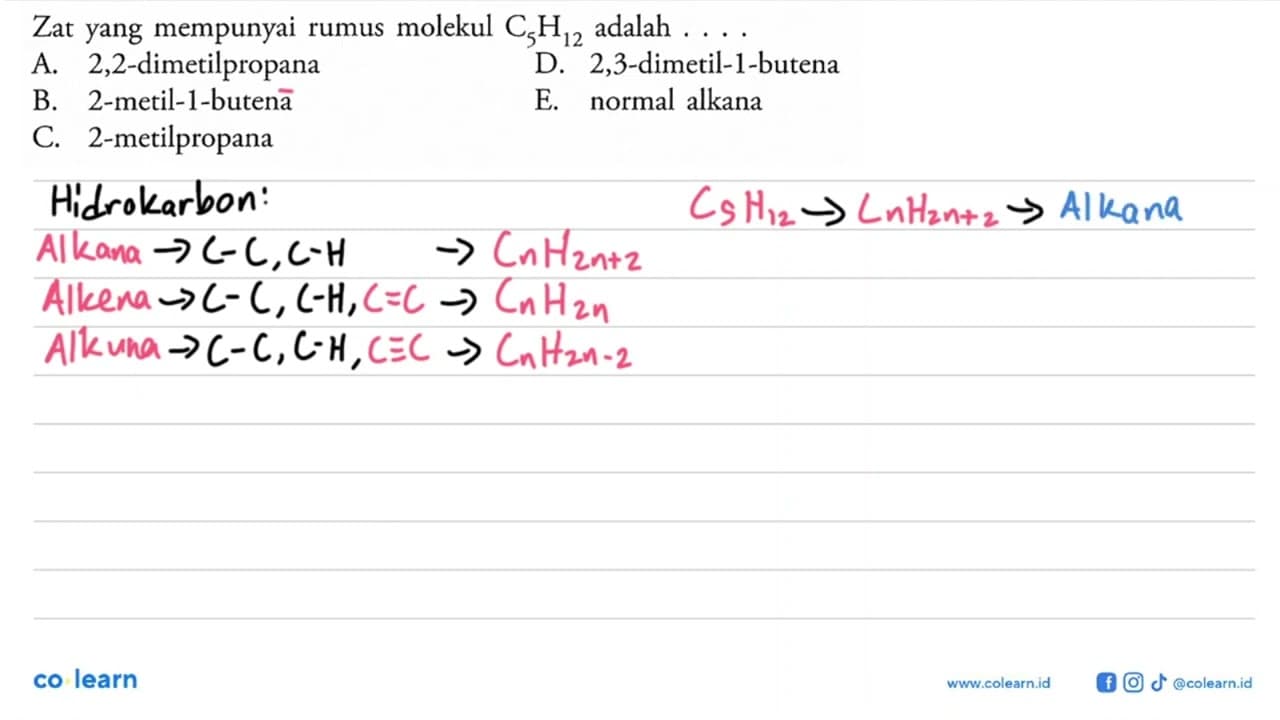 Zat yang mempunyai rumus molekul C₅H₁₂ adalah . . . .
A. 2,2-dimetilpropana
B. 2-metil-1-butena
C. 2-metilpropana
D. 2,3-dimetil-1-butena
E. normal alkana
Hidrokarbon:
Alkana → C-C, C-H → CnH2n+2
Alkena → C-C, C-H, C=C → CnH2n
Alkuna → C-C, C-H, C≡C → CnH2n-2
C5H12 → CnH2n+2 → Alkana
co learn
www.colearn.id
@colearn.id